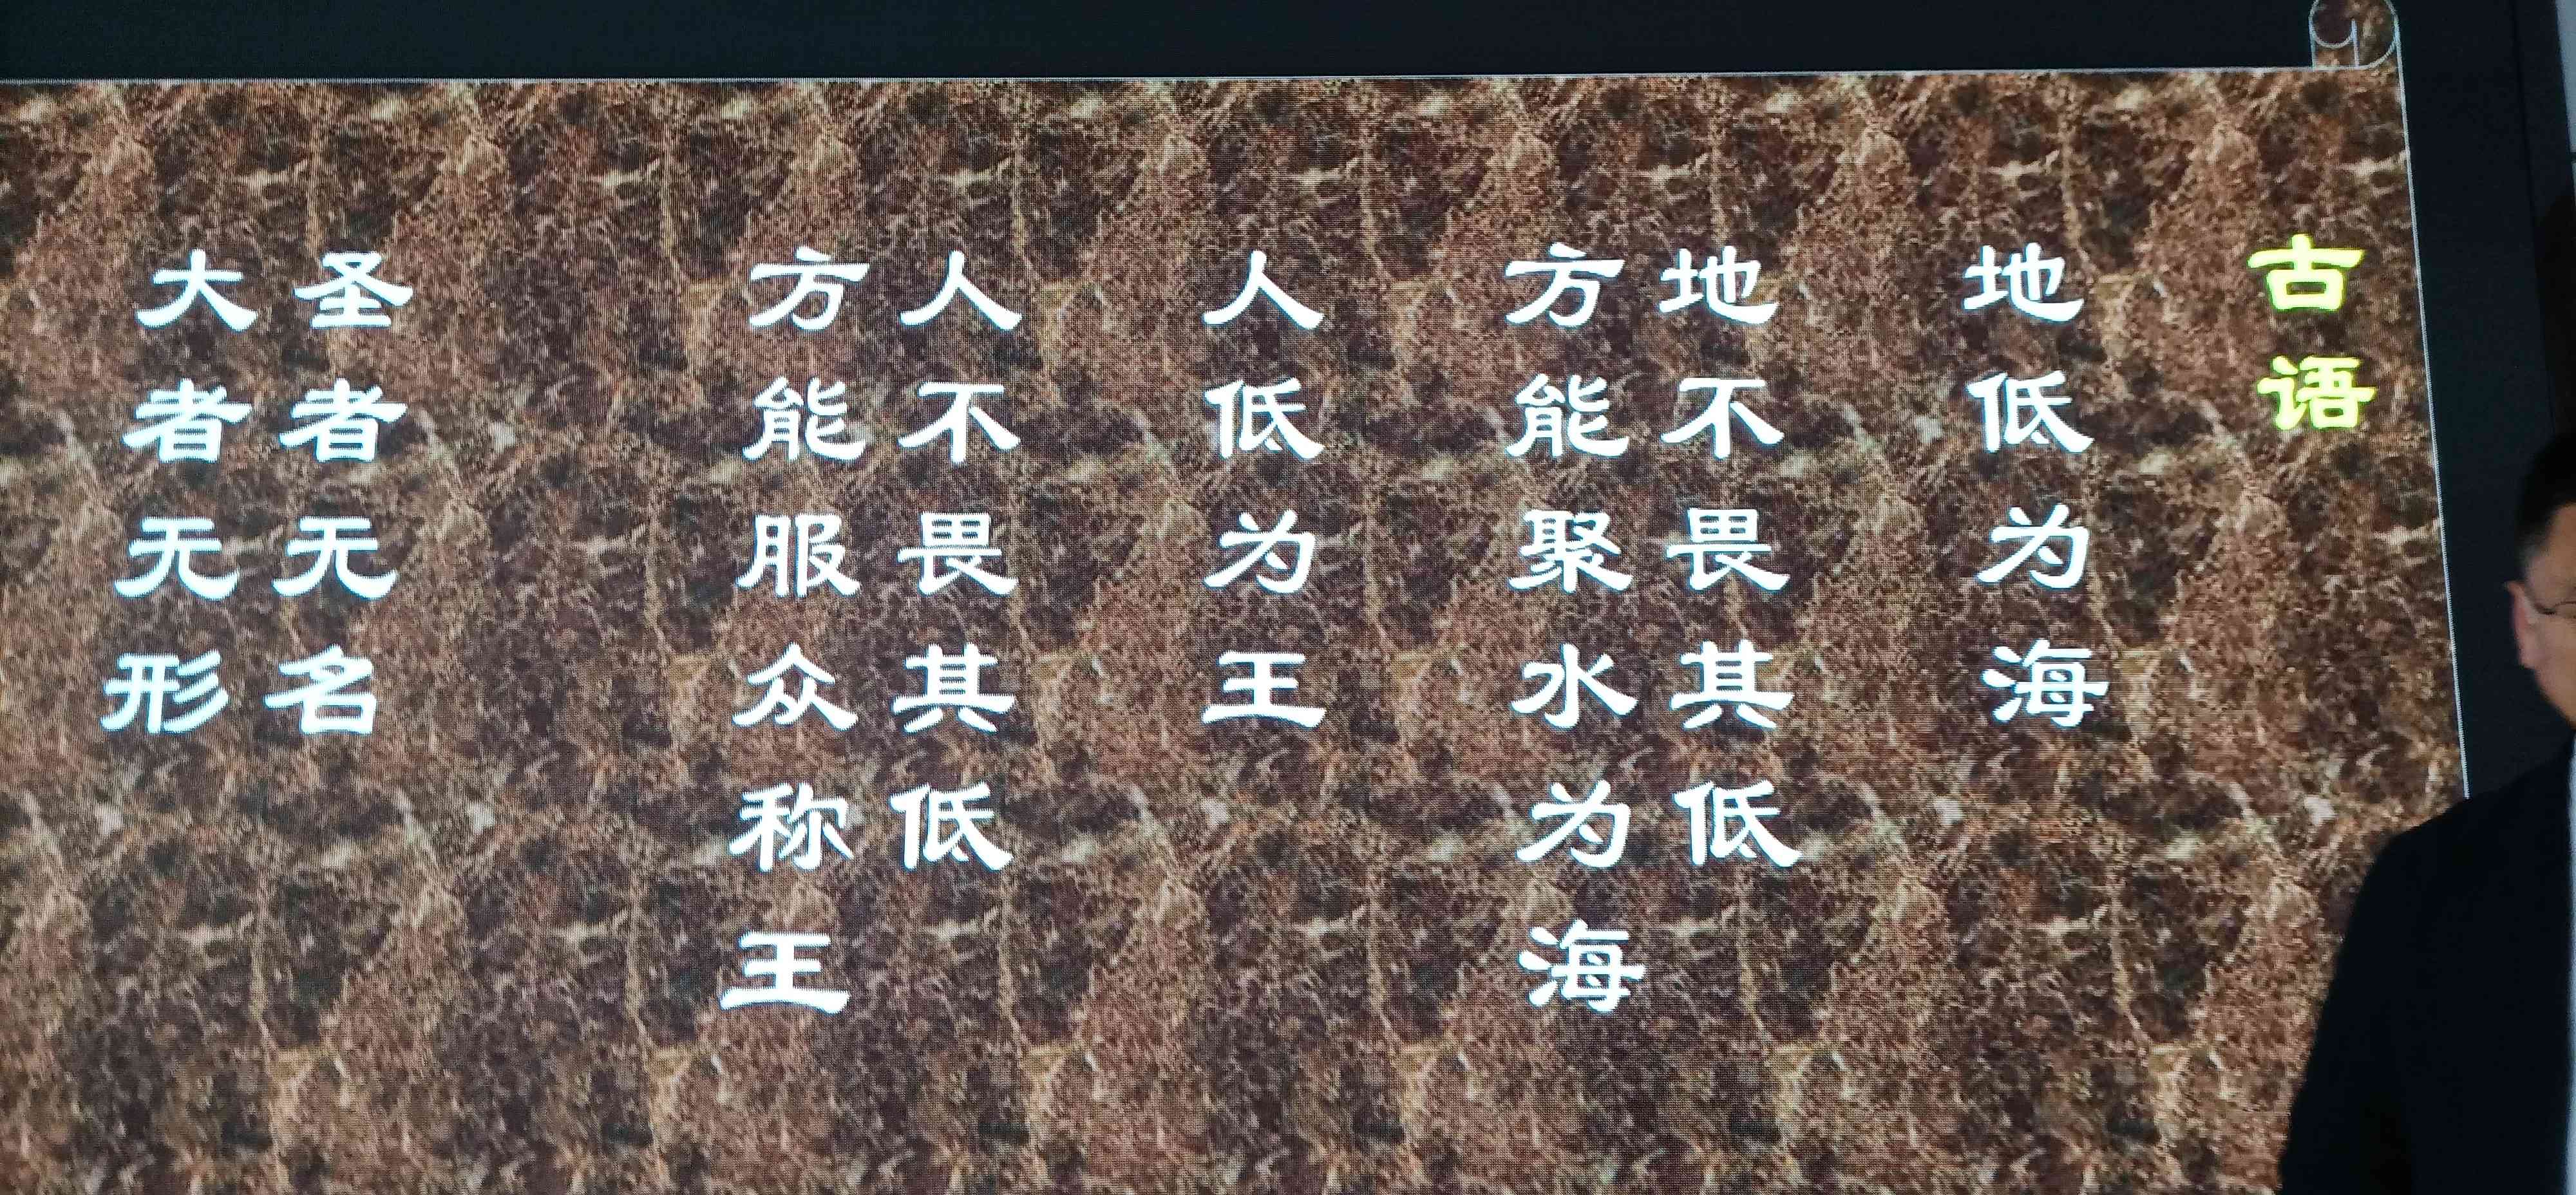 古语
地低为海
地不畏其低
方能聚水为海
人低为王
人不畏其低
方能服众称王
圣者无名
大者无形